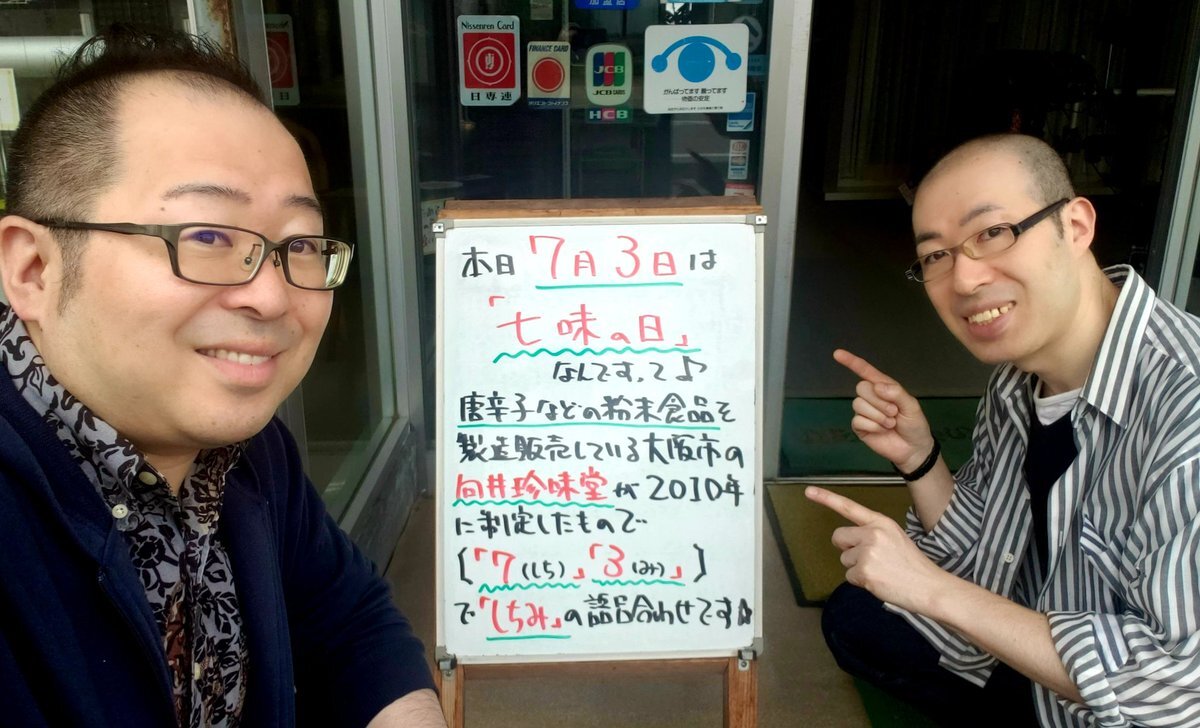 加盟店
Nissenren Card
日専連
FINANCE CARD
JCB
JCB CARDS
HCB
がんばってます 願ってます
物価の安定
本日 7月3日は
「七味の日」
なんですって♪
唐辛子などの粉末食品を
製造販売している大阪市の
向井珍味堂が2010年
に制定したもので
【「7(しち)」「3(み)」】
で「しちみ」の語呂合わせです☆